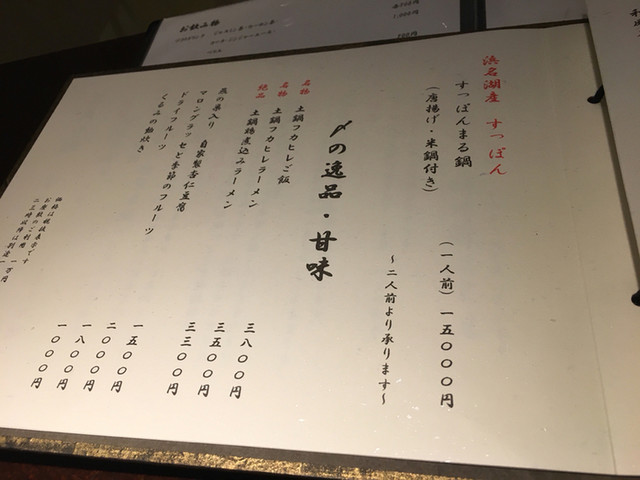 浜名湖産 すっぽん
すっぽんまる鍋
(唐揚げ・米鍋付き)
(一人前)一五〇〇〇円
〜二人前より承ります〜
〆の逸品・甘味
名物 土鍋フカヒレご飯 三八〇〇円
名物 土鍋フカヒレラーメン 三五〇〇円
絶品 土鍋鶏煮込みラーメン 三三〇〇円
燕の巣入り 自家製杏仁豆腐 一五〇〇円
マロングラッセと季節のフルーツ 二〇〇〇円
ドライフルーツ 一八〇〇円
くるみの飴炊き 一〇〇〇円
価格は税抜表示です
お座敷のご利用 一万円